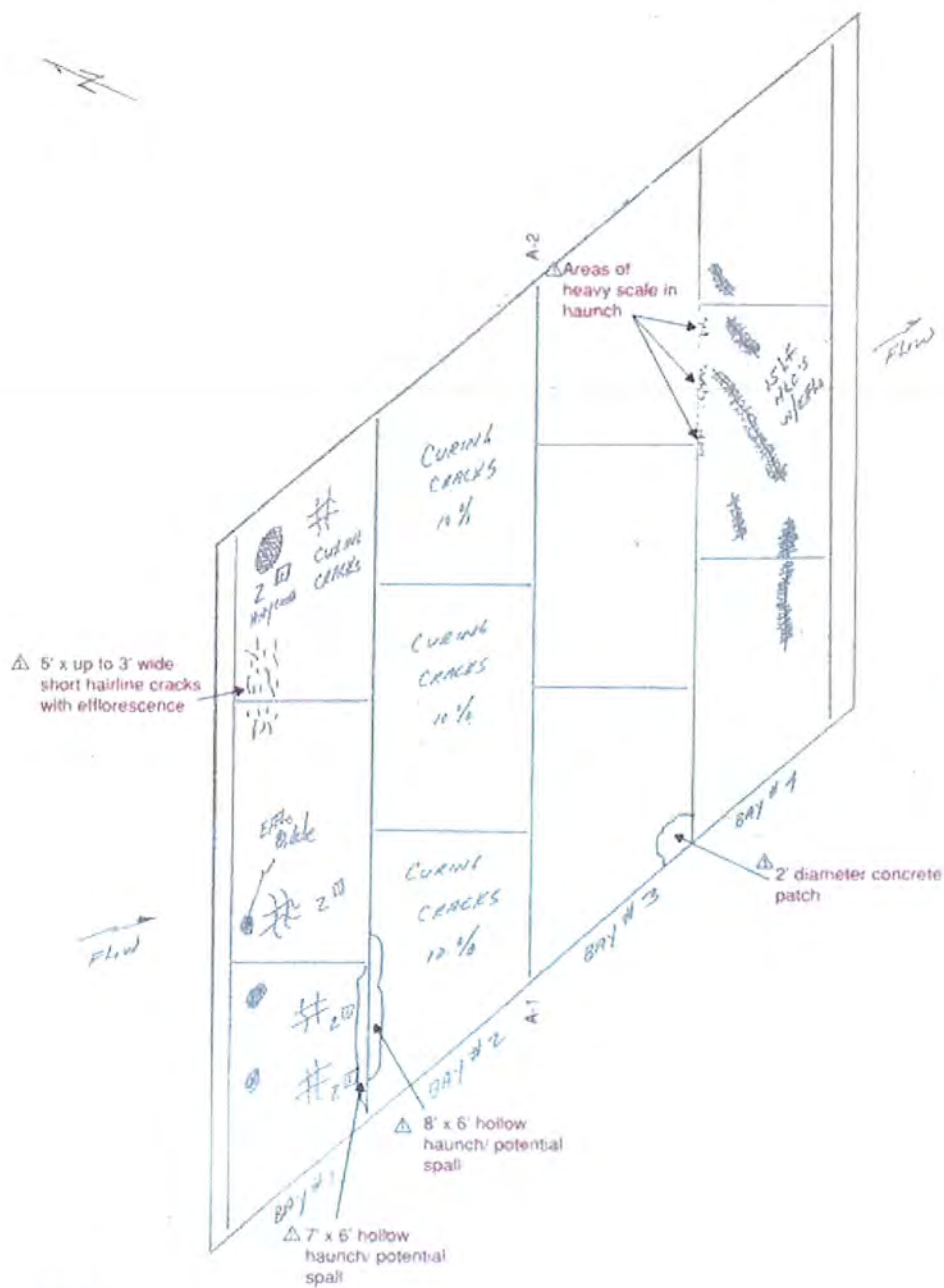 N
A-2
⚠ Areas of
heavy scale in
haunch
FLOW
15 LF
HLC'S
W/EFFLO
CURING
CRACKS
10 %
CURING
CRACKS
2
⚠ 5' x up to 3' wide
short hairline cracks
with efflorescence
CURING
CRACKS
10 %
Efflo
BAY # 4
⚠ 2' diameter concrete
patch
2
CURING
CRACKS
10 %
BAY # 3
FLOW
A-1
2
2
BAY # 2
⚠ 8' x 6' hollow
haunch/ potential
spall
BAY # 1
⚠ 7' x 6' hollow
haunch/ potential
spall